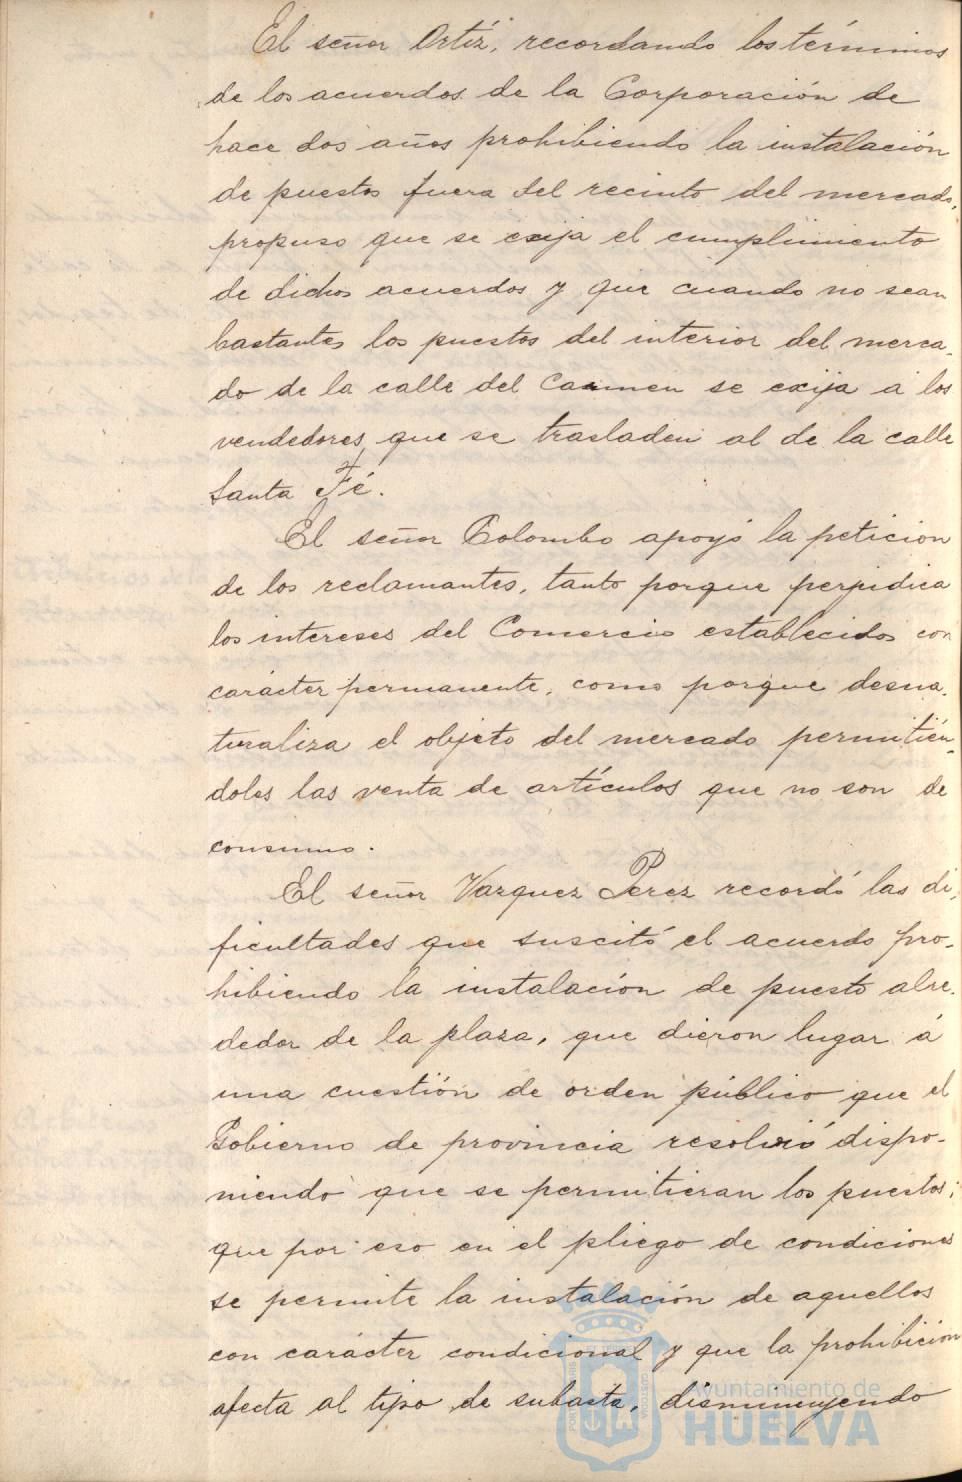 El señor Ortíz, recordando los términos
de los acuerdos de la Corporación de
hace dos años prohibiendo la instalación
de puestos fuera del recinto del mercado,
propuso que se exija el cumplimiento
de dichos acuerdos y que cuando no sean
bastantes los puestos del interior del merca-
do de la calle del Carmen se exija á los
vendedores que se trasladen al de la calle
Santa Fé.
El señor Colombo apoyó la petición
de los reclamantes, tanto porque perjudica
los intereses del Comercio establecidos con
carácter permanente, como porque desna-
turaliza el objeto del mercado permitién-
doles las venta de artículos que no son de
consumo.
El señor Vazquez Perez recordó las di-
ficultades que suscitó el acuerdo pro-
hibiendo la instalación de puesto alre-
dedor de la plaza, que dieron lugar á
una cuestión de orden público que el
Gobierno de provincia resolvió dispo-
niendo que se permitieran los puestos;
que por eso en el pliego de condiciones
se permite la instalación de aquellos
con carácter condicional y que la prohibición
afecta al tipo de subasta, disminuyendo
Ayuntamiento de
HUELVA